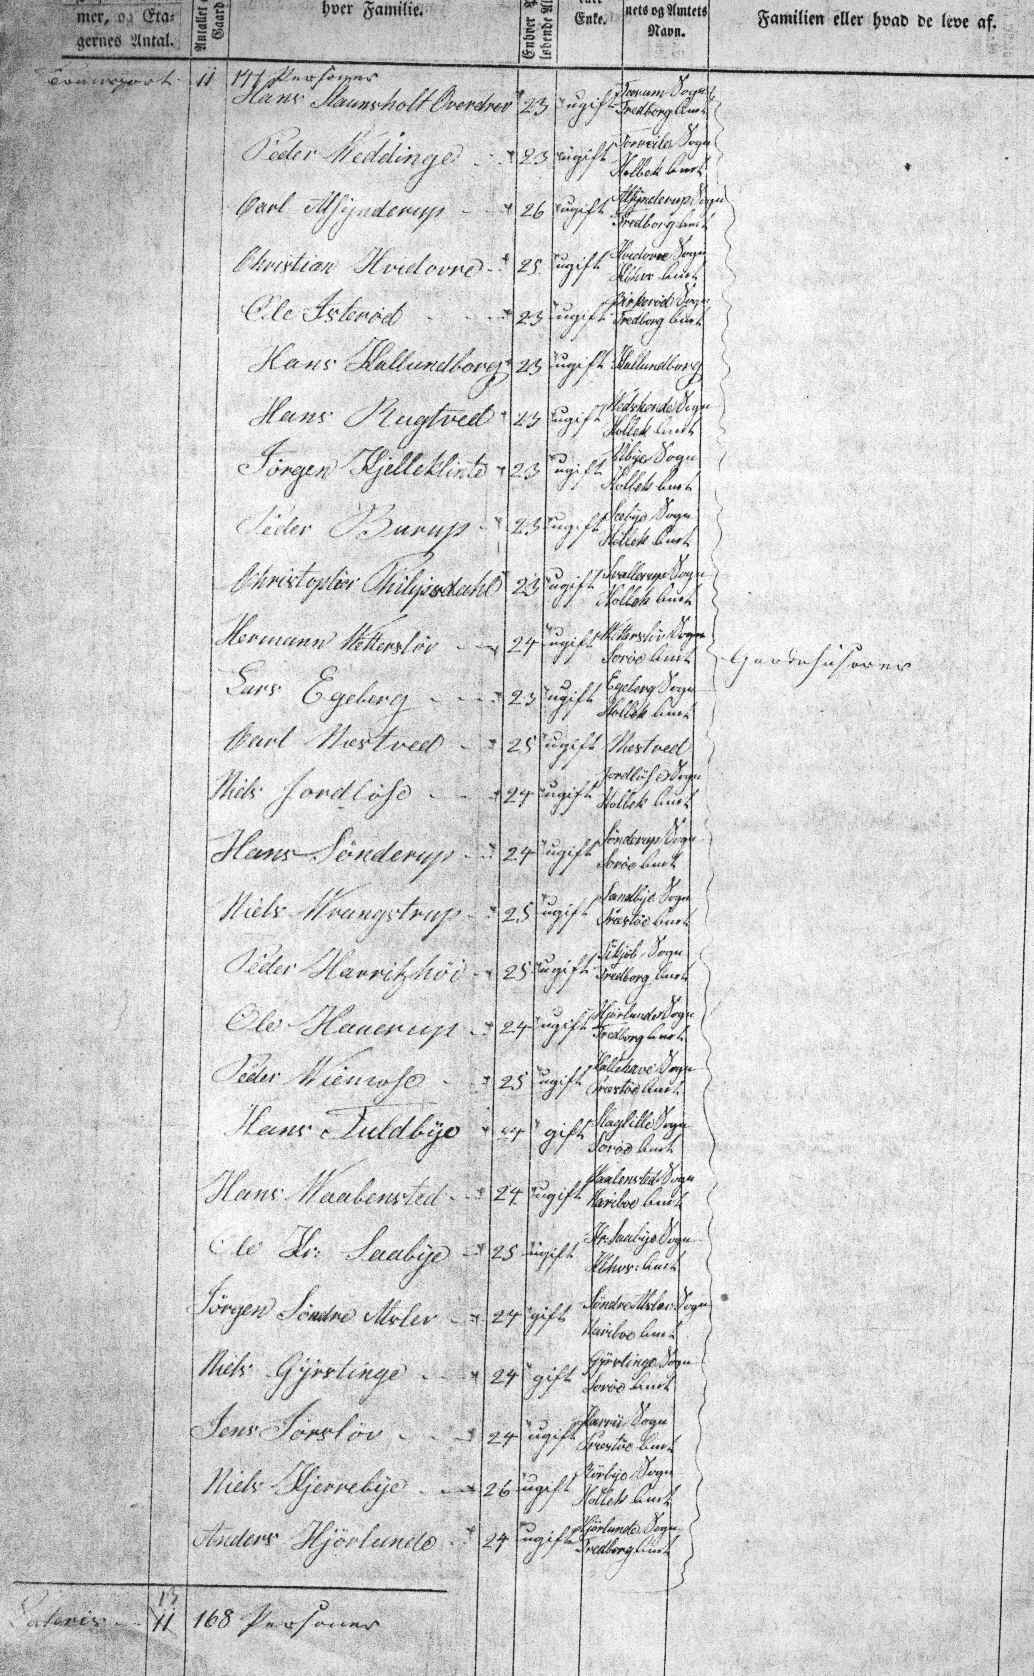 mer, og Eta-
gernes Antal.
hver Familie.
Enke.
nets og Amtets
Navn.
Familien eller hvad de leve af.
Transport 11 141 Personer
Hans Staunsholt Overdrev 23 ugift Sogn
Fredborg Amt
Peder Weddinge 23 ugift Sogn
Holbek Amt
Carl Asfønderup 26 ugift Sogn
Fredborg Amt
Christian Hvidovre 25 ugift Hvidovre Sogn
Kbhvs Amt
Ole Isteröd 23 ugift Birkeröd Sogn
Fredborg Amt
Hans Kallundborg 23 ugift Kallundborg
Hans Rugtved 23 ugift Sogn
Holbek Amt
Jörgen Kjelleklinte 23 ugift Ubye Sogn
Holbek Amt
Peder Burup 23 ugift Seebye Sogn
Holbek Amt
Christopher Philipsdahl 23 ugift Svallerup Sogn
Holbek Amt
Hermann Wetterslöv 24 ugift Wetterslöv Sogn
Soröe Amt
Gardehusarer
Lars Egeberg 23 ugift Egeberg Sogn
Holbek Amt
Carl Næstved 25 ugift Nestved
Niels Jordlöse 24 ugift Jordlöse Sogn
Holbek Amt
Hans Sönderup 24 ugift Sönderup Sogn
Soröe Amt
Niels Wrangstrup 25 ugift Sandbye Sogn
Præstöe Amt
Peder Harritzhöi 25 ugift Tikjöb Sogn
Fredborg Amt
Ole Hauerup 24 ugift Hjörlunde Sogn
Fredborg Amt
Peder Wiemose 25 ugift Kallehave Sogn
Præstöe Amt
Hans Tuldbye gift Slaglille Sogn
Soröe Amt
Hans Waabensted 24 ugift Sogn
Mariboe Amt
Ole Kr: Saabye 25 ugift Kr: Saabye Sogn
Kbhvs: Amt
Jörgen Söndre Alslev 24 gift Söndre Alslev Sogn
Mariboe Amt
Niels Gyrstinge 24 gift Gyrstinge Sogn
Soröe Amt
Jens Törslöv 24 ugift Sogn
Præstöe Amt
Niels Kjerrebye 26 ugift Sogn
Holbek Amt
Anders Hjörlunde 24 ugift Hjörlunde Sogn
Fredborg Amt
13
Lateris 11 168 Personer